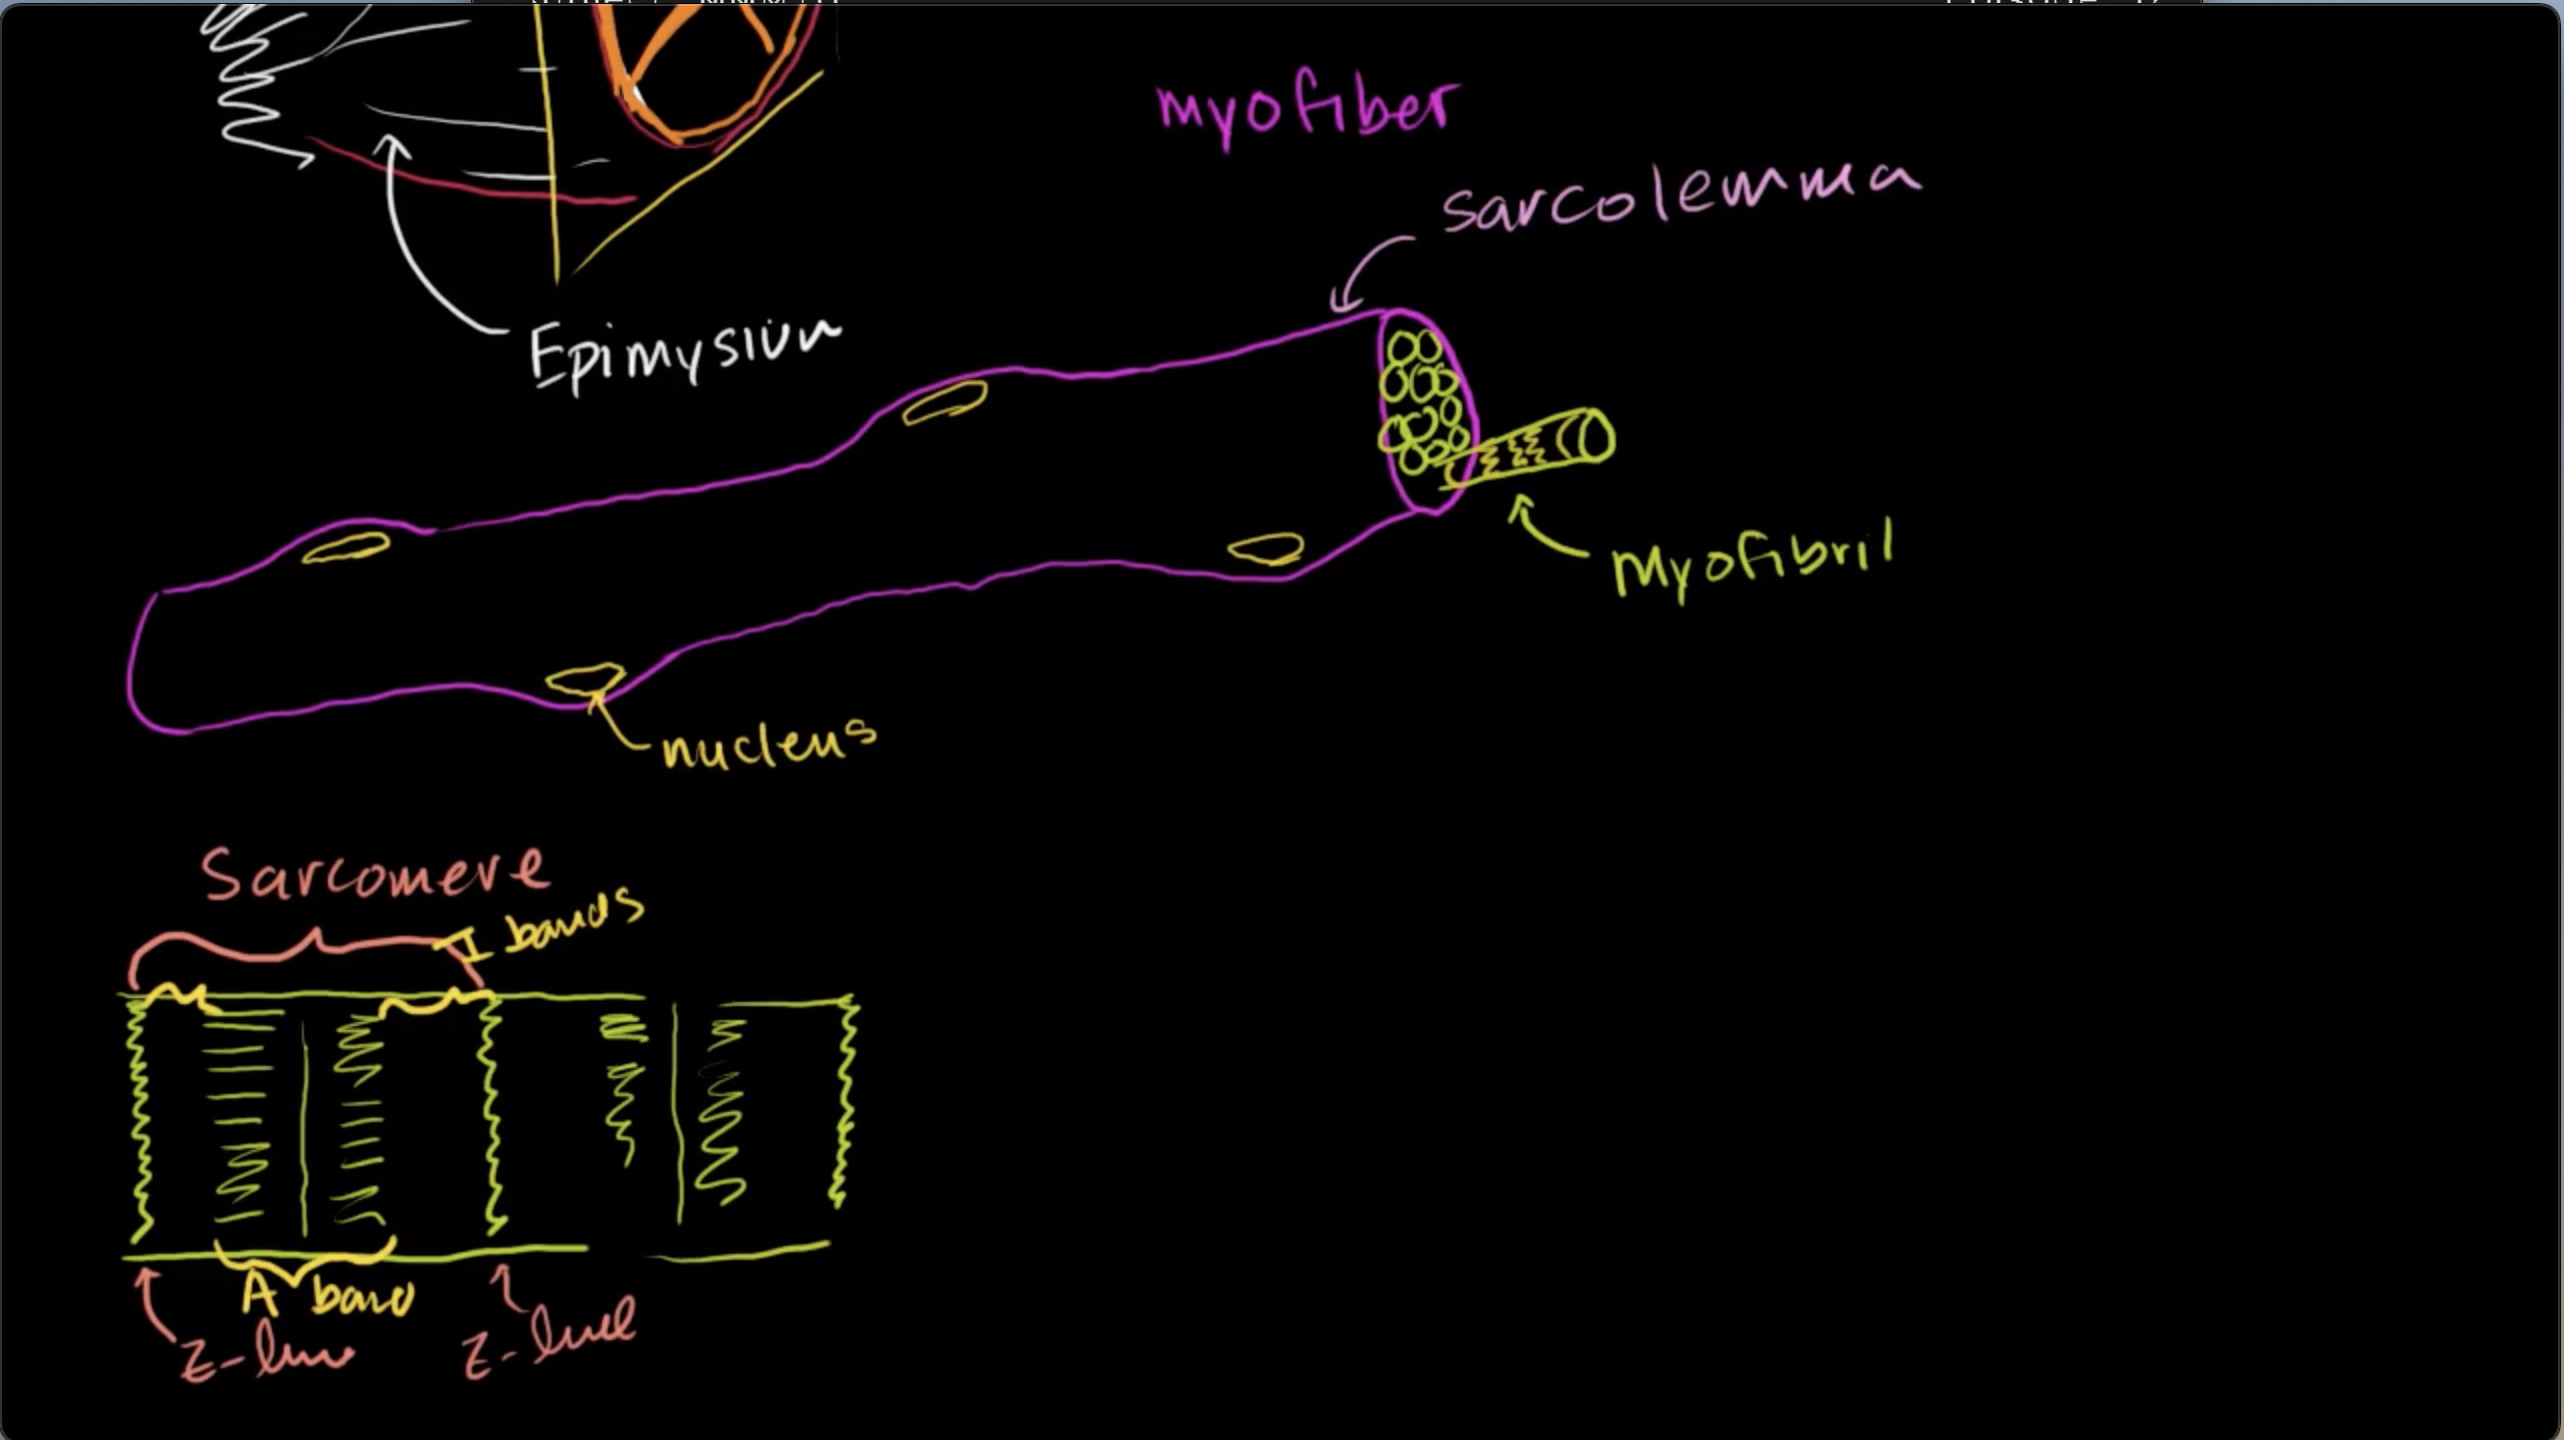 myofiber
sarcolemma
Epimysium
Myofibril
nucleus
Sarcomere
I bands
A band
Z-line
Z-line